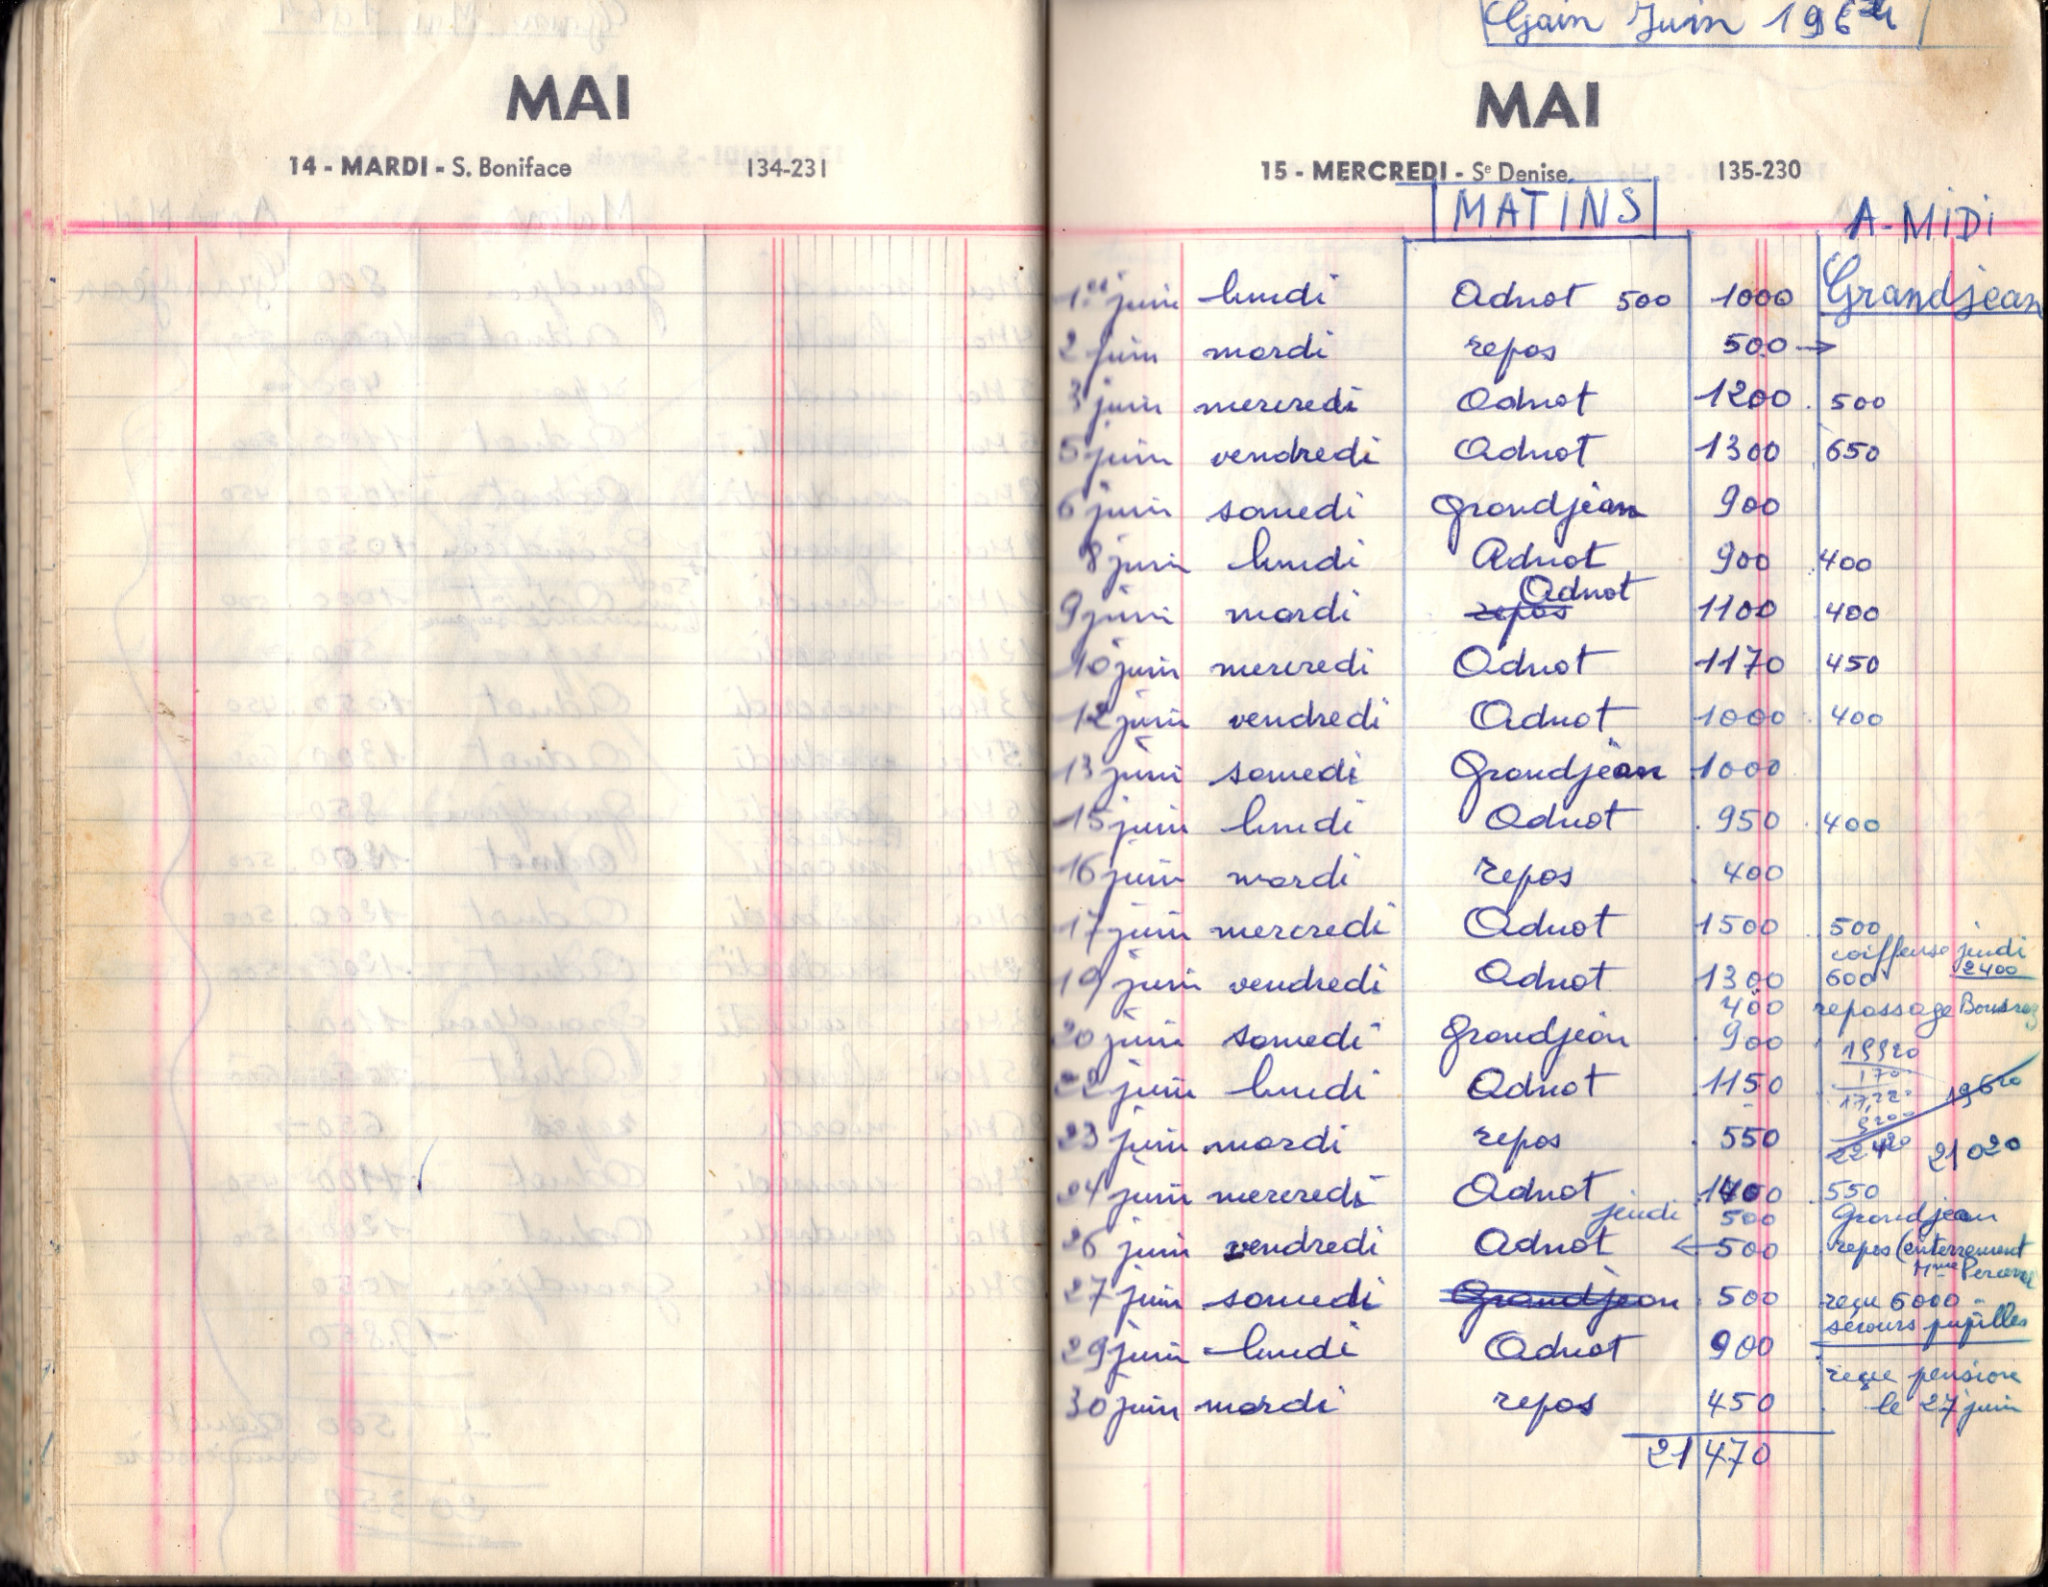 MAI
14 - MARDI - S. Boniface 134-231
Gain Juin 1964
MAI
15 - MERCREDI - Sᵉ Denise 135-230
MATINS A-MIDI
1er juin lundi Adnot 500 1000 Grandjean
2 juin mardi repos 500 →
3 juin mercredi Adnot 1200 . 500
5 juin vendredi Adnot 1300 650
6 juin samedi Grandjean 900
8 juin lundi Adnot 900 400
Adnot
9 juin mardi repos 1100 400
10 juin mercredi Adnot 1170 450
12 juin vendredi Adnot 1000 . 400
13 juin samedi Grandjean 1000
15 juin lundi Adnot 950 . 400
16 juin mardi repos 400
17 juin mercredi Adnot 1500 500
coiffeuse jeudi
19 juin vendredi Adnot 1300 600 2400
400 repassage
20 juin samedi Grandjean 900
19920
22 juin lundi Adnot 1150 170
19620
23 juin mardi repos 550 22420 21020
24 juin mercredi Adnot 1400 . 550
jeudi 500 Grandjean
26 juin vendredi Adnot ← 500 repos (enterrement
Mme
27 juin samedi Grandjean 500 reçu 6000
secours pupilles
29 juin lundi Adnot 900
reçu pension
30 juin mardi repos 450 le 27 juin
21470